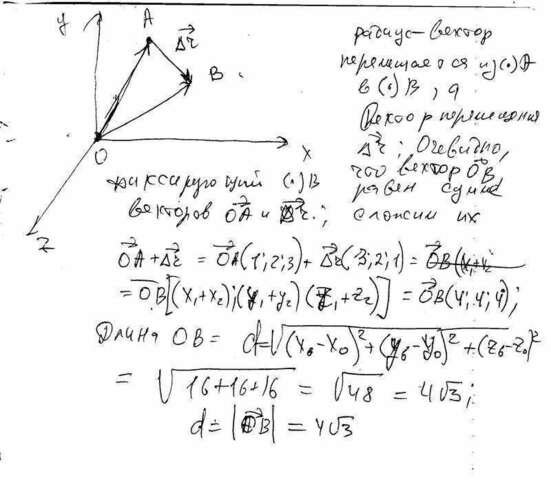 y
A
Δr
B
O
x
z
радиус-вектор
перемещается из (·) A
в (·) B, а
вектор перемещения
Δr; Очевидно,
что вектор OB,
фиксирующий (·) B
равен сумме
векторов OA и Δr; сложим их
OA + Δr = OA(1; 2; 3) + Δr(3; 2; 1) = OB(x₁+x₂
= OB[(x₁+x₂); (y₁+y₂) (z₁+z₂)] = OB(4; 4; 4);
Длина OB = d=√(x_B-x_0)²+(y_B-y_0)²+(z_B-z_0)²
= √16+16+16 = √48 = 4√3;
d = |OB| = 4√3